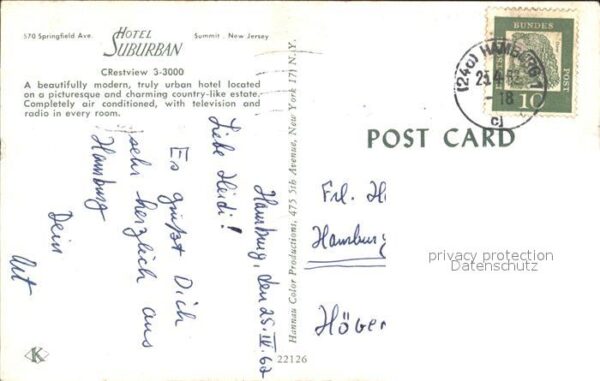 570 Springfield Ave.
HOTEL
SUBURBAN
Summit, New Jersey
CRestview 3-3000
A beautifully modern, truly urban hotel located
on a picturesque and charming country-like estate.
Completely air conditioned, with television and
radio in every room.
Hamburg, den 25.IV.62
Liebe Heidi!
Es grüßt Dich
sehr herzlich aus
Hamburg
Dein
Hannau Color Productions, 475 5th Avenue, New York 17, N.Y.
22126
K
DEUTSCHE
BUNDES
POST
10
(24a) HAMBURG 1
-18
cj
POST CARD
Frl. H
Hamburg
Höger
privacy protection
Datenschutz